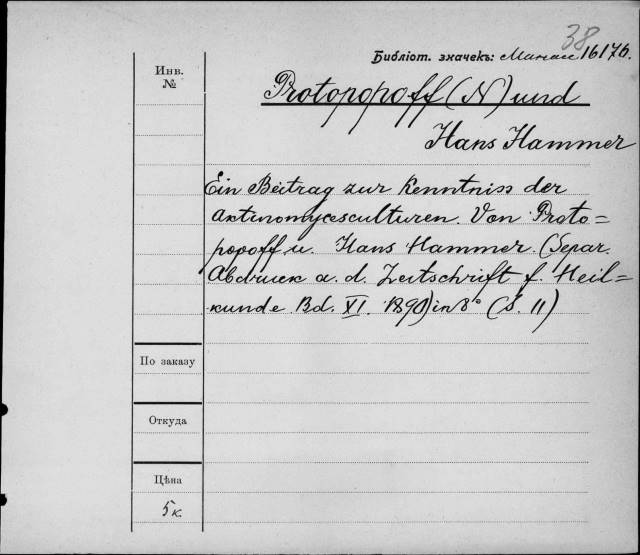 38
Библіот. значекъ: 16176.
Инв.
№
Protopopoff (N) und
Hans Hammer
Ein Beitrag zur Kenntniss der
Aktinomycesculturen. Von Proto=
popoff u. Hans Hammer. (Separ.
Abdruck a. d. Zeitschrift f. Heil=
kunde Bd. XI. 1890) in 8° (S. 11)
По заказу
Откуда
Цѣна
5 к